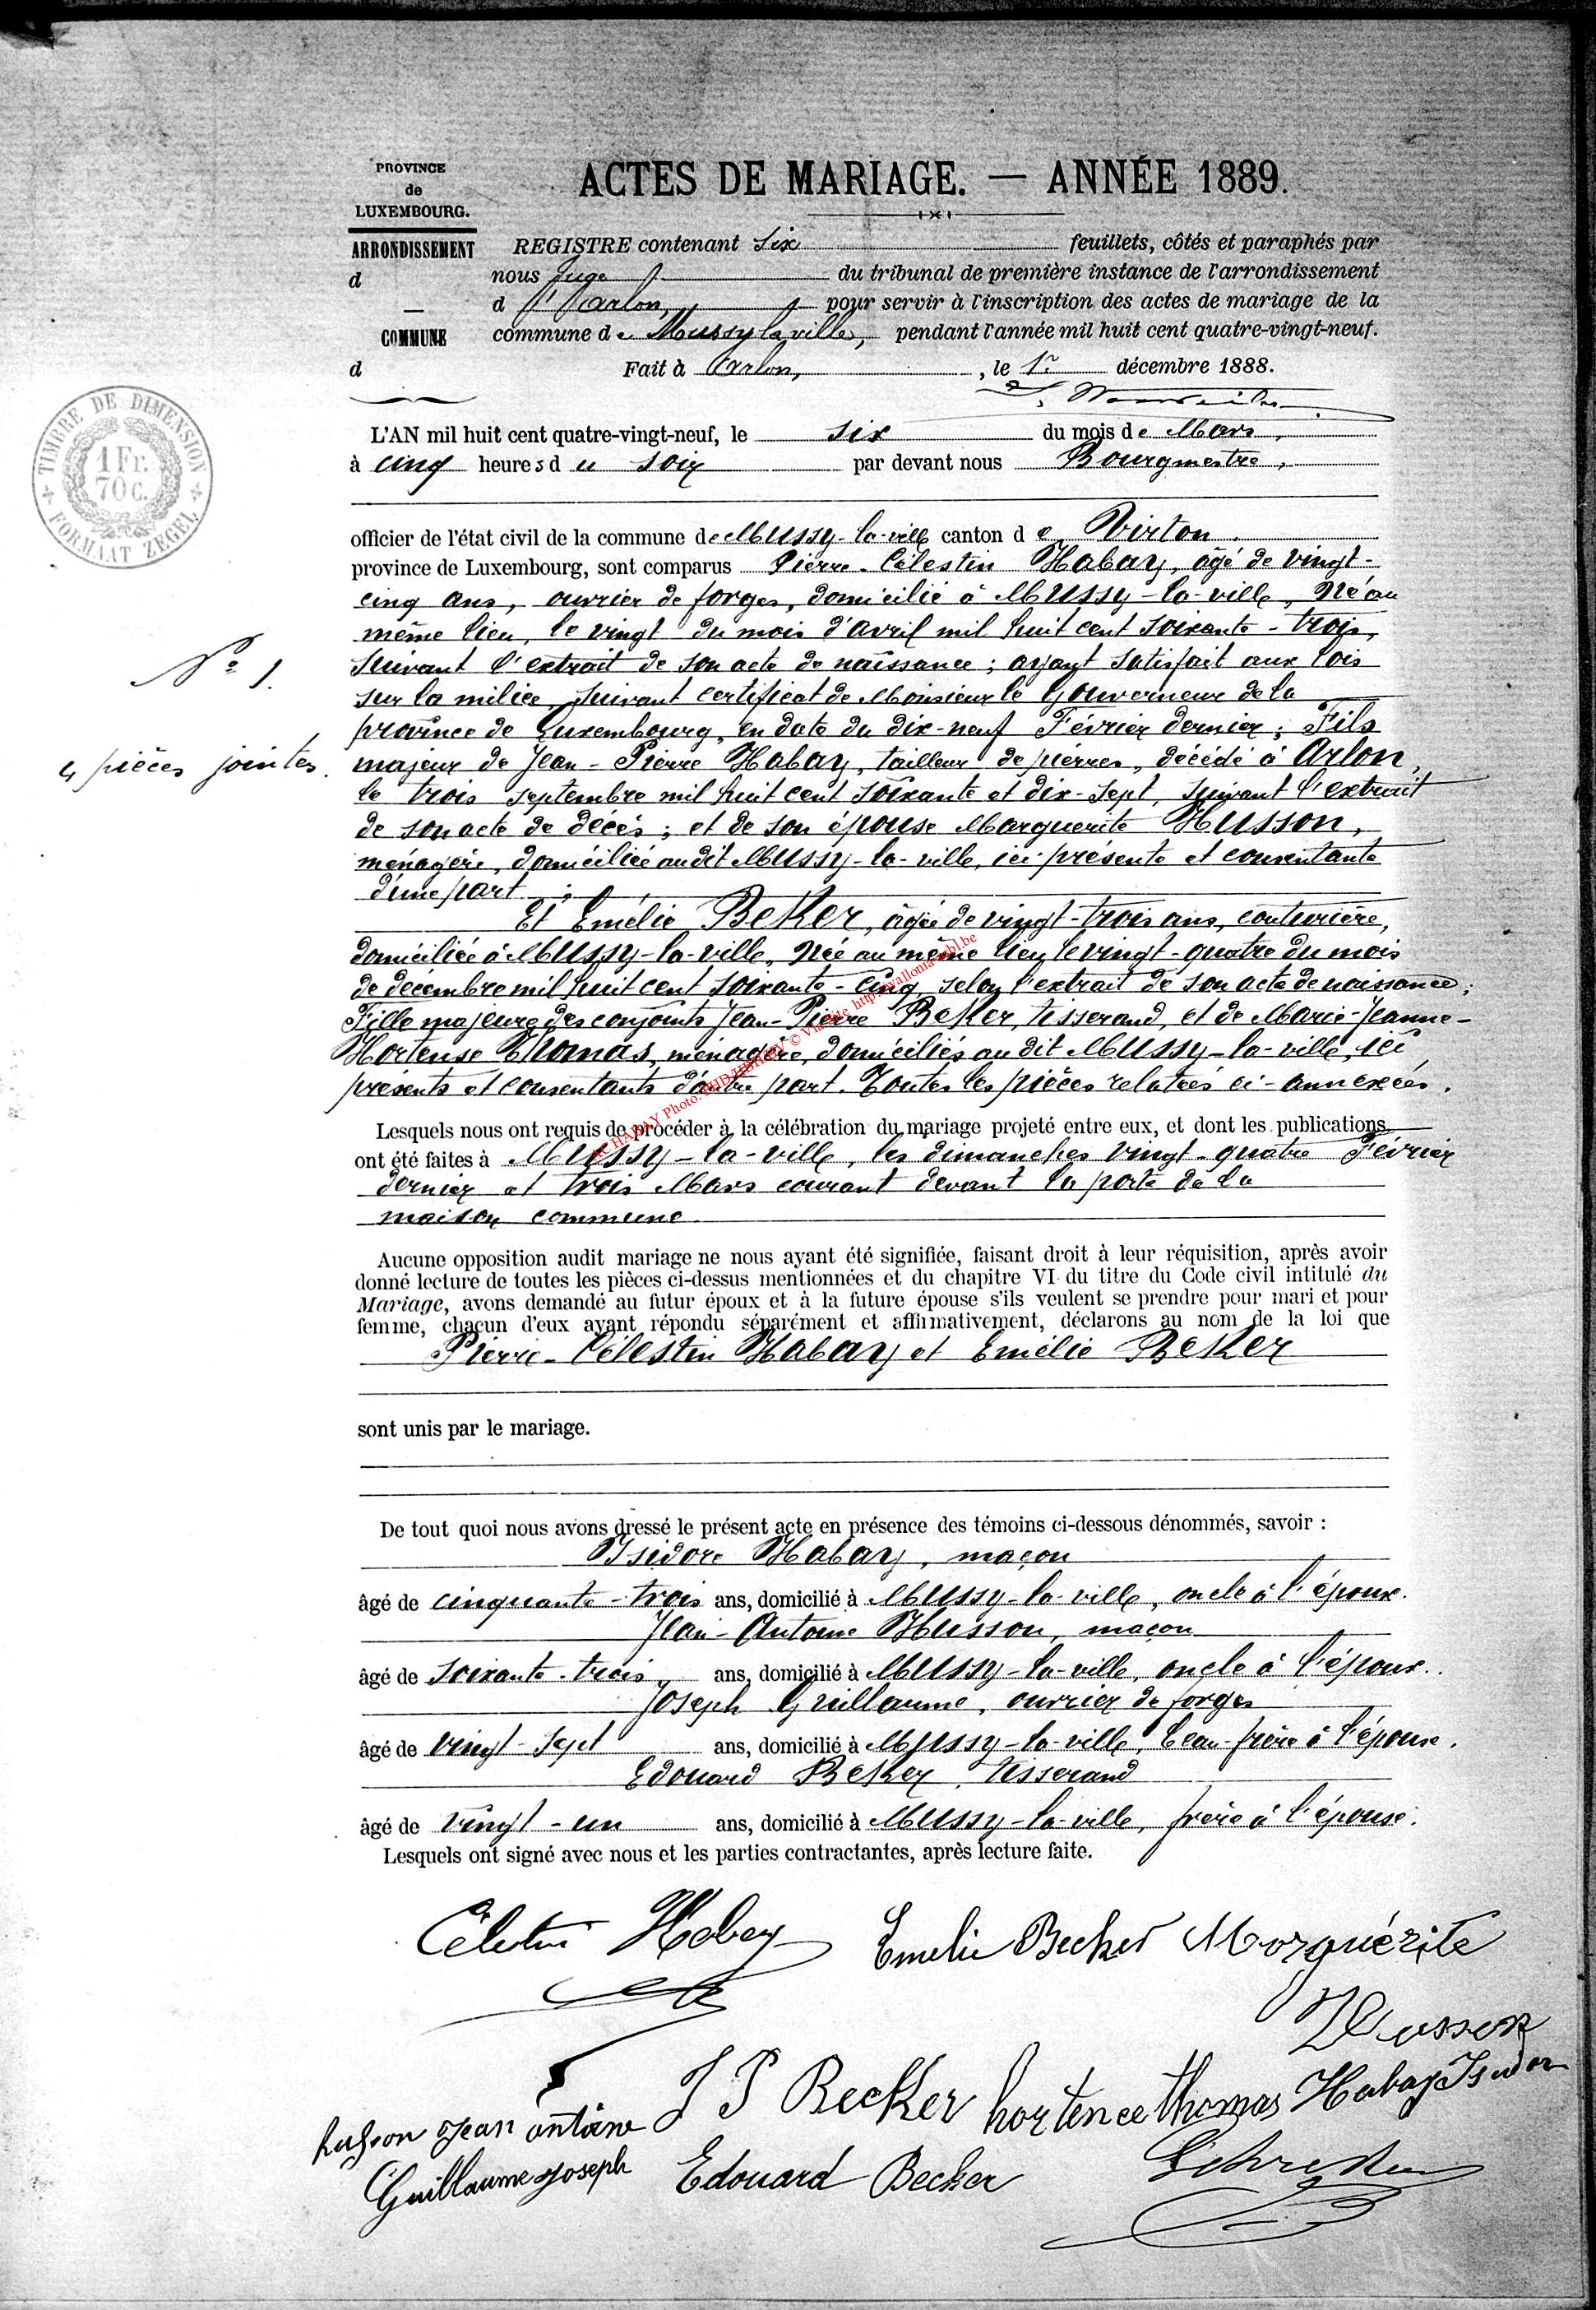 PROVINCE
de
LUXEMBOURG.
ARRONDISSEMENT
d
COMMUNE
d
ACTES DE MARIAGE. — ANNÉE 1889.
REGISTRE contenant six feuillets, côtés et paraphés par
nous Juge du tribunal de première instance de l'arrondissement
d'Arlon, pour servir à l'inscription des actes de mariage de la
commune de Mussy la ville, pendant l'année mil huit cent quatre-vingt-neuf.
Fait à Arlon, , le 1r décembre 1888.
TIMBRE DE DIMENSION
1 Fr.
70 c.
FORMAAT ZEGEL
L'AN mil huit cent quatre-vingt-neuf, le six du mois de Mars,
à cinq heures du soir par devant nous Bourgmestre,
officier de l'état civil de la commune de Mussy-la-ville canton de Virton.
province de Luxembourg, sont comparus Pierre-Célestin Habay, âgé de vingt-
cinq ans, ouvrier de forges, domicilié à Mussy-la-ville, Né au
même lieu, le vingt du mois d'avril mil huit cent soixante-trois,
N° 1.
suivant l'extrait de son acte de naissance; ayant satisfait aux lois
sur la milice, suivant certificat de Monsieur le Gouverneur de la
province de Luxembourg, en date du dix-neuf Février dernier; Fils
4 pièces jointes.
majeur de Jean-Pierre Habay, tailleur de pierres, décédé à Arlon,
le trois septembre mil huit cent soixante et dix-sept, suivant l'extrait
de son acte de décès; et de son épouse Marguerite Husson,
ménagère, domiciliée audit Mussy-la-ville, ici présente et consentante
d'une part;
Et Emélie Beker, âgée de vingt-trois ans, couturière,
domiciliée à Mussy-la-ville, Née au même lieu le vingt-quatre du mois
de décembre mil huit cent soixante-cinq, selon l'extrait de son acte de naissance;
Fille majeure des conjoints Jean-Pierre Beker, tisserand, et de Marie-Jeanne-
Hortense Thomas, ménagère, domiciliés audit Mussy-la-ville, ici
présents et consentants d'autre part. Toutes les pièces relatées ci-annexées.
HABAY Photo: © Via site
Lesquels nous ont requis de procéder à la célébration du mariage projeté entre eux, et dont les publications
ont été faites à Mussy-la-ville, les dimanches vingt-quatre Février
dernier et trois Mars courant devant la porte de la
maison commune.
Aucune opposition audit mariage ne nous ayant été signifiée, faisant droit à leur réquisition, après avoir
donné lecture de toutes les pièces ci-dessus mentionnées et du chapitre VI du titre du Code civil intitulé du
Mariage, avons demandé au futur époux et à la future épouse s'ils veulent se prendre pour mari et pour
femme, chacun d'eux ayant répondu séparément et affirmativement, déclarons au nom de la loi que
Pierre-Célestin Habay et Emélie Beker
sont unis par le mariage.
De tout quoi nous avons dressé le présent acte en présence des témoins ci-dessous dénommés, savoir :
Isidore Habay, maçon
âgé de cinquante-trois ans, domicilié à Mussy-la-ville, oncle à l'époux.
Jean-Antoine Husson, maçon
âgé de soixante-trois ans, domicilié à Mussy-la-ville, oncle à l'époux.
Joseph Guillaume, ouvrier de forges
âgé de vingt-sept ans, domicilié à Mussy-la-ville, beau-frère à l'épouse.
Edouard Beker, tisserand
âgé de vingt-un ans, domicilié à Mussy-la-ville, frère à l'épouse.
Lesquels ont signé avec nous et les parties contractantes, après lecture faite.
Célestin Habay Emelie Becker Morguérite
Husson
husson jean antoine J P Becker hortence thomas Habay Isidor
Guillaume Joseph Edouard Becker